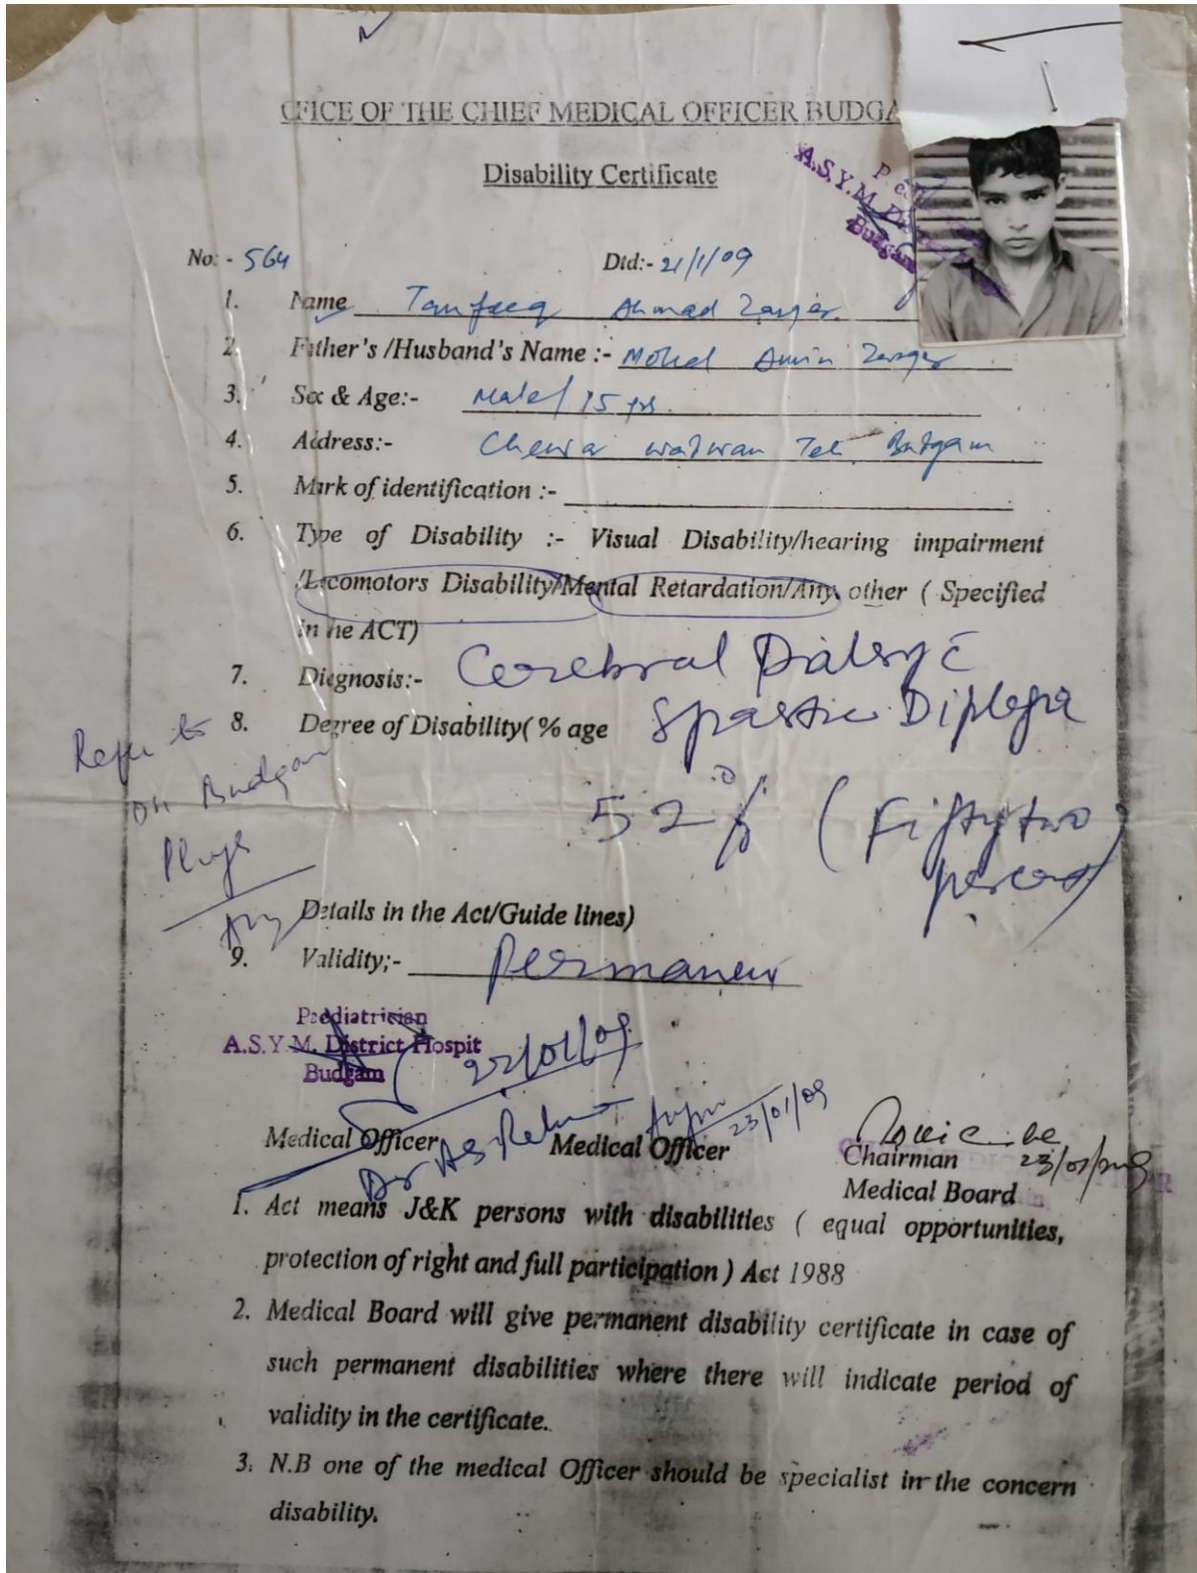 OFFICE OF THE CHIEF MEDICAL OFFICER BUDGA
Disability Certificate
A.S.Y.M. Dis
Budgam
No: - 564 Dtd:- 21/1/09
1. Name Taufeeq Ahmad Zargar
2. Father's /Husband's Name :- Mohd Amin Zargar
3. Sex & Age:- Male/ 15 yrs.
4. Address:- Chewa wadwan Teh. Budgam
5. Mark of identification :-
6. Type of Disability :- Visual Disability/hearing impairment
/Locomotors Disability/Mental Retardation/Any other ( Specified
in he ACT)
7. Diagnosis:- Cerebral Palsy c̄
8. Degree of Disability( % age Spastic Diplegia
on Budgam
52% ( Fifty two
percent)
Details in the Act/Guide lines)
9. Validity;- Permanent
Paediatrician
A.S.Y.M. District Hospit
Budgam
22/01/09
Medical Officer Medical Officer 23/01/09
Chairman
Medical Board
1. Act means J&K persons with disabilities ( equal opportunities,
protection of right and full participation ) Act 1988
2. Medical Board will give permanent disability certificate in case of
such permanent disabilities where there will indicate period of
validity in the certificate.
3. N.B one of the medical Officer should be specialist in the concern
disability.